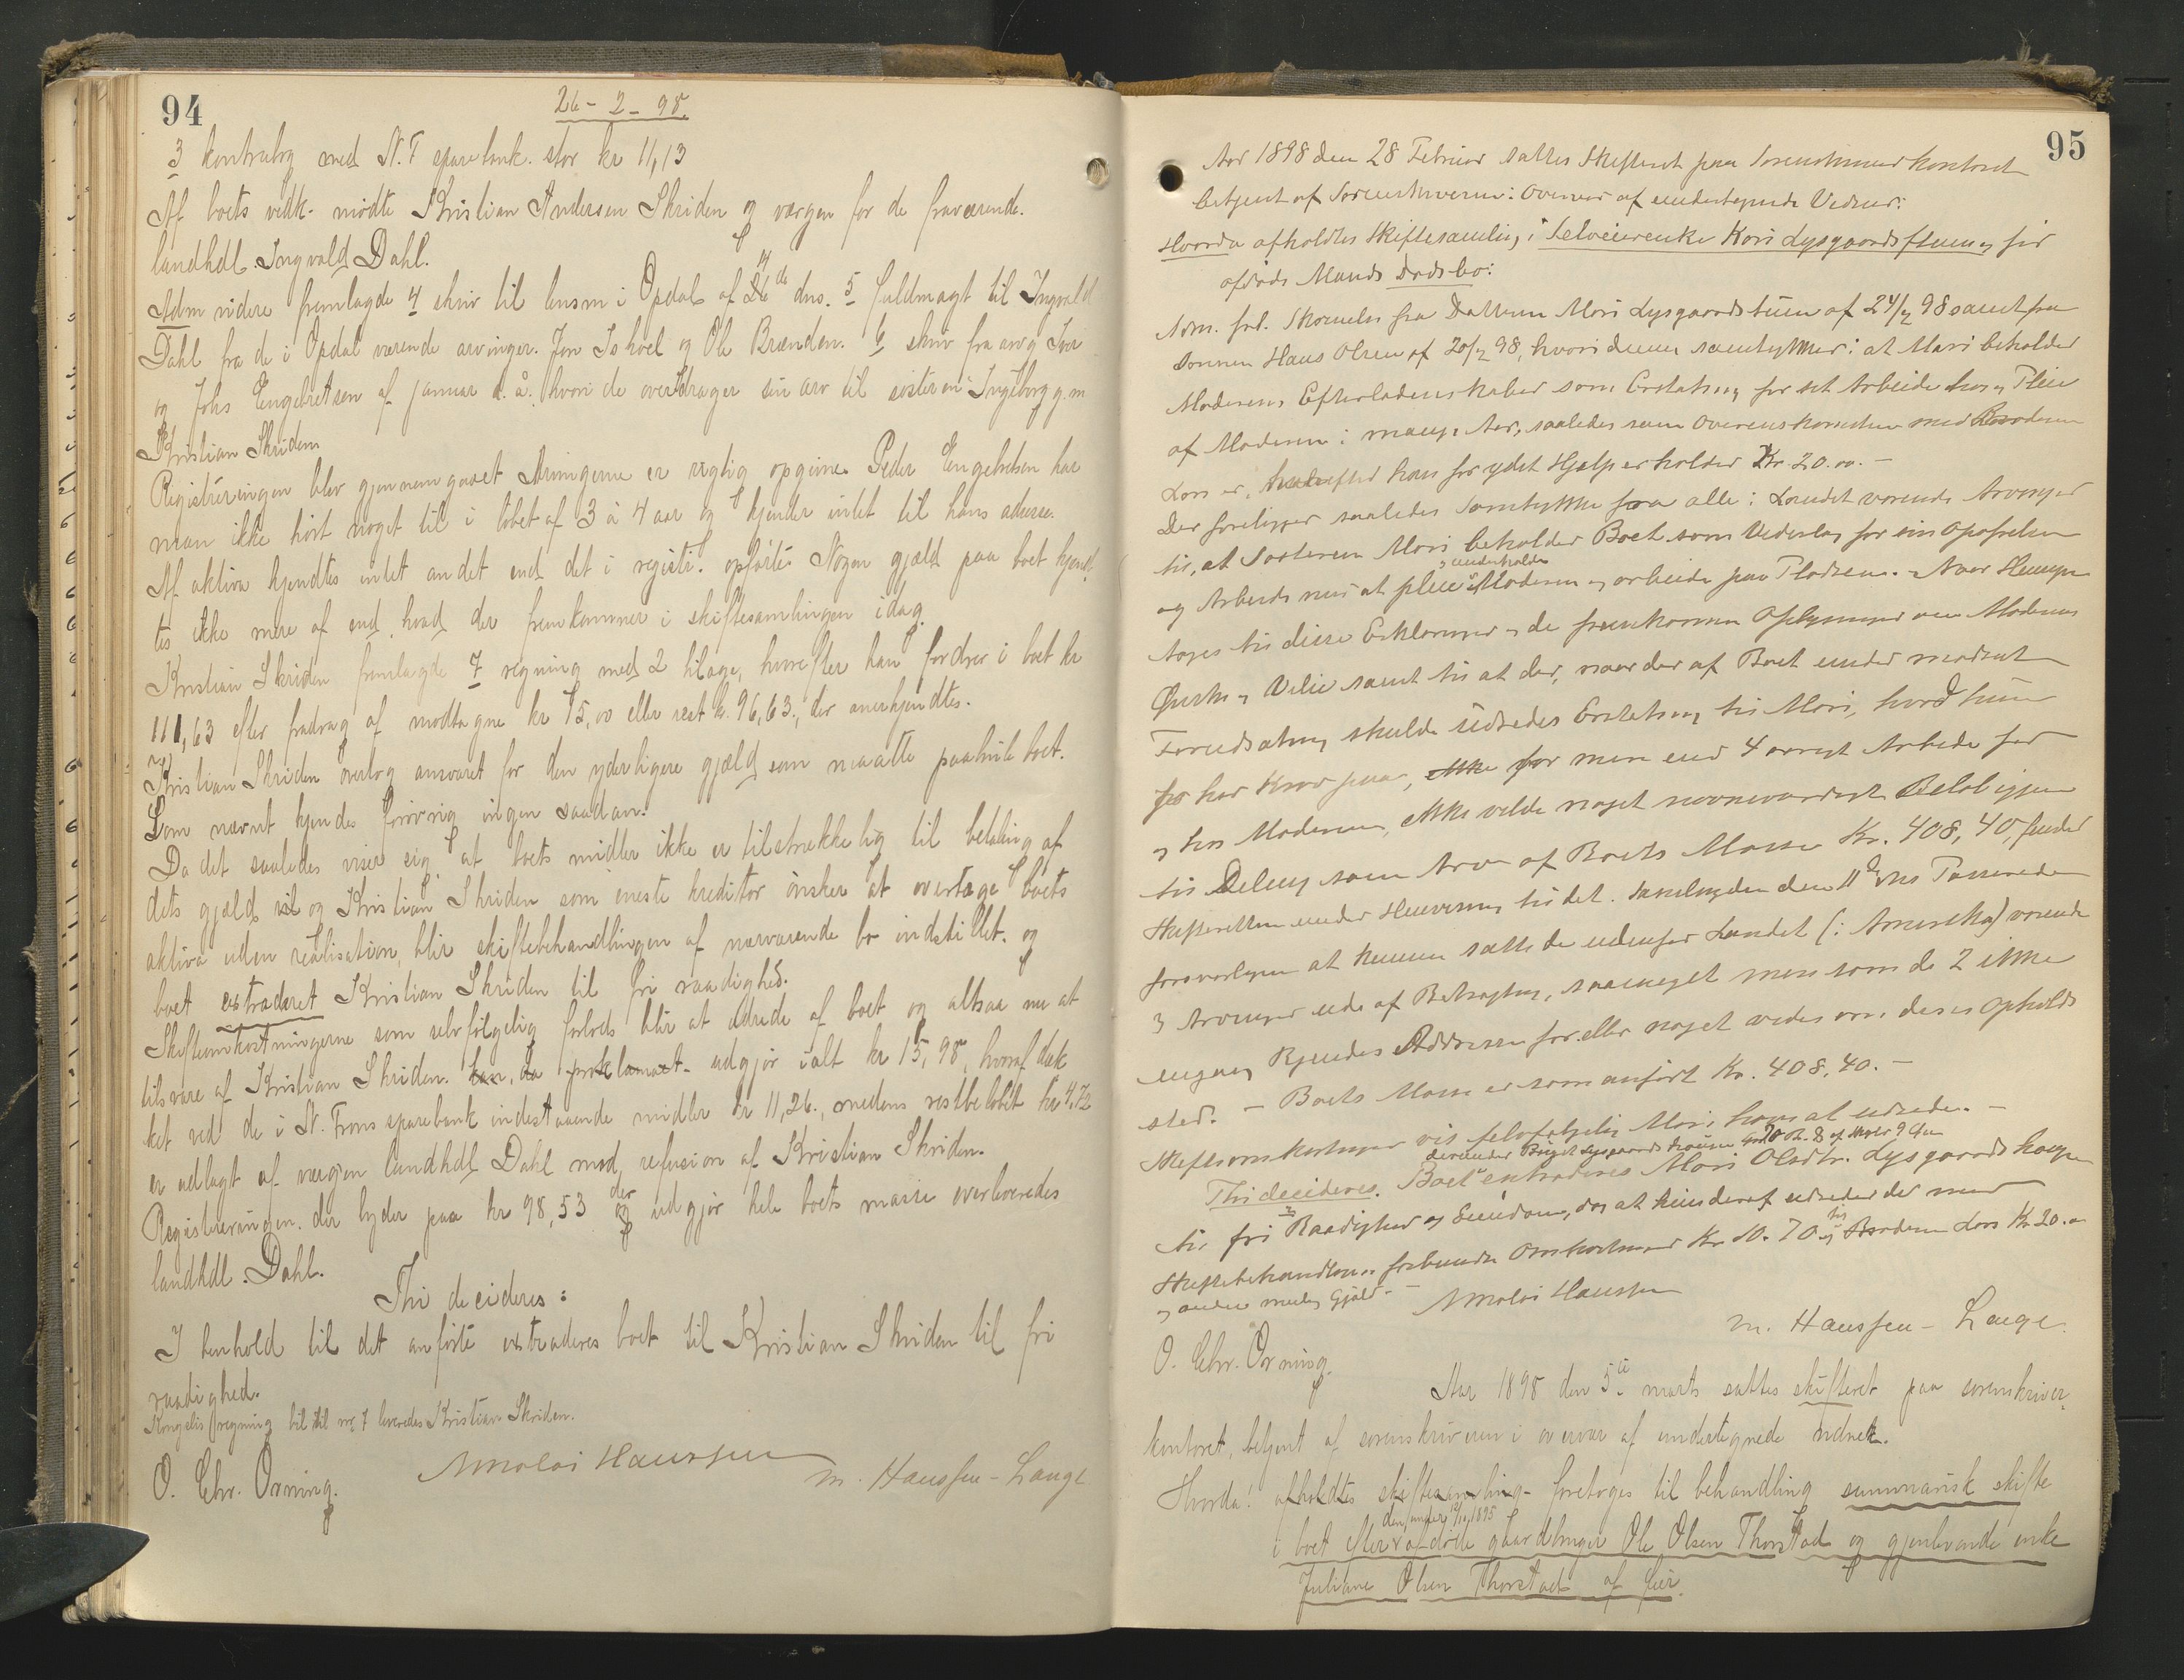 94
26-2-98.
3 kontrabog med N. F sparebank. stor kr 11,13
Af boets vedk. mødte Kristian Andersen Skriden og værgen for de fraværende.
landhdl. Ingvald Dahl.
Adm videre fremlagde 4 skriv til lensm i Opdal af 26de dns. 5 fuldmagt til Ingvald
Dahl fra de i Opdal værende arvinger. Jon Ishoel og Ole Brænden. 6 skriv fra arvg Iver
og Johs Engebretsen af januar d. å. hvori de overdrager sin arv til søsteren Ingeborg g. m
Kristian Skriden
Registreringen blev gjennemgaaet Arvingerne er rigtig opgivne Peder Engebretsen har
man ikke hørt noget til i løbet af 3 à 4 aar og kjender intet til hans adresse.
Af aktiva kjendtes intet andet end det i registr. opførte. Nogen gjæld paa boet kjend
tes ikke mere af end hvad der fremkommer i skiftesamlingen idag.
Kristian Skriden fremlagde 7 regning med 2 bilage, hvorefter han fordrer i boet kr
111,63 efter fradrag af modtagne kr 15,00 eller rest kr. 96,63., der anerkjendtes.
Kristian Skriden overtog ansvaret for den yderligere gjæld som maatte paahvile boet.
Som nævnt kjendes forøvrig ingen saadan.
Da det saaledes viser sig at boets midler ikke er tilstrækkelig til betaling af
dets gjæld og Kristian Skriden som eneste kreditor ønsker at overtage boets
aktiva uden realisation, blir skiftebehandlingen af nærværende bo indstillet. og
boet extraderet Kristian Skriden til fri raadighed.
Skifteomkostningerne som selvfølgelig forlods blir at udrede af boet og altsaa nu at
tilsvare af Kristian Skriden. udgjør ialt kr 15,98, hvoraf dæk
ket ved de i N. Frons sparebank indestaaende midler kr 11,26., medens restbeløbet kr 4,72
er udlagt af værgen landhdl Dahl mod refusion af Kristian Skriden.
Registreringen. der lyder paa kr 98,53 der udgjør hele boets masse overleveredes
landhdl. Dahl.
Thi decideres:
I henhold til det anførte extraderes boet til Kristian Skriden til fri
raadighed.
regning bil til no 7 leveredes Kristian Skriden.
O. Chr. Orning. Nikolai Hanssen M. Hanssen-Lange
95
Aar 1898 den 28 Februar sattes Skifteret paa Sorenskriverkontoret
betjent af Sorenskriveren i Overvær af undertegnede Vidner:
Hvorda afholdtes Skiftesamling i Selveierenke Kari Lysgaards og før
afdøde Mands Dødsbo:
Adm. frl. Skrivelse fra Datteren Mari Lysgaardstuen af 24/2 98 samt fra
Sønnen Hans Olsen af 20/2 98, hvori denne samtykker i at Mari beholder
Moderens Efterladenskaber som Erstatning for sit Arbeide hos og Pleie
af Moderen i mange Aar, saaledes som Overenskomsten med Broderen
Lars er, hvorefter han for ydet Hjelp erholder Kr. 20.00.-
Der foreligger saaledes Samtykke fra alle i Landet værende Arvinger
til, at Søsteren Mari beholder Boet som Vederlag for sin Opofrelse
og Arbeide med at pleie og underholde Moderen og arbeide paa Pladsen. - Naar Hensyn
tages til disse Erklæringer og de fremkomne Oplysninger om Moderens
Ønske og Vilie samt til at der, naar der af Boet under modsat
Forudsætning skulde udredes Erstatning til Mari, hvad hun
har Krav paa, ikke for mere end 4 aarigt Arbeide for
og hos Moderen, ikke vilde noget nævneværdigt Beløb igjen
til Deling som Arv af Boets Masse Kr. 408,40, finder
Skifteretten under Henvisning til det i Samlingen den 11 ds Passerede
forsvarligen at kunne sætte de udenfor Landet (i Amerika) værende
3 Arvinger ude af Betragtning, saameget mere som de 2 ikke
engang kjendes Addresse for eller noget vides om deres Opholds
sted. - Boets Masse er som anført Kr. 408,40. -
Skifteomkostninger vil selvfølgelig Mari have at udrede. -
Thi decideres. Boet extraderes Mari Olsdtr. Lysgaardshaugen
til fri Raadighed og Eiendom, dog at hun deraf udreder de med
Skiftebehandlingen forbundne Omkostninger Kr 10.70 og til Broderen Lars Kr 20.00
og anden mulig Gjæld.-
Nikolai Hanssen
M. Hanssen-Lange.
O. Chr. Orning.
Aar 1898 den 5te marts sattes skifteret paa sorenskriver
kontoret, betjent af sorenskriveren i overvær af undertegnede vidner.
Hvorda! afholdtes skiftesamling foretoges til behandling summarisk skifte
i boet efter den under 1895 afdøde gaardbruger Ole Olsen Thorstad og gjenlevende enke
Juliane Olsen Thorstad af